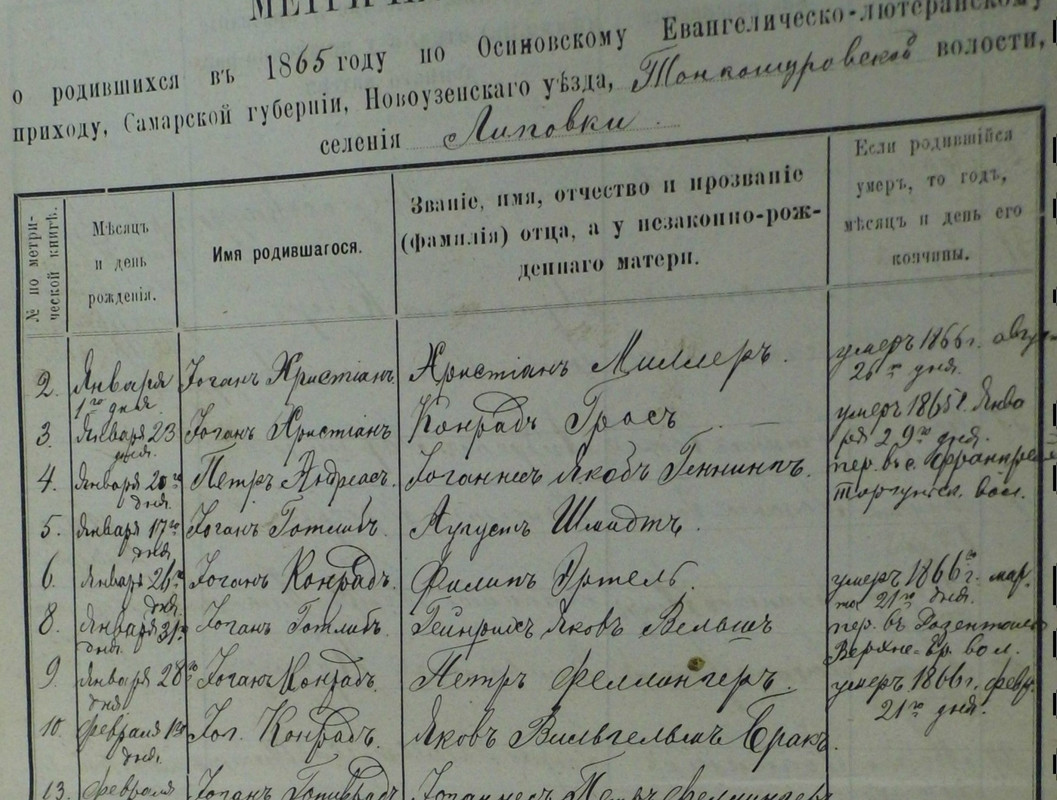 о родившихся въ 1865 году по Осиновскому Евангелическо-лютеранскому
приходу, Самарской губерніи, Новоузенскаго уѣзда, Тонкошуровской волости,
селенія Липовки.
№ по метри-
ческой книгѣ.
Мѣсяцъ
и день
рожденія.
Имя родившагося.
Званіе, имя, отчество и прозваніе
(фамилія) отца, а у незаконно-рож-
деннаго матери.
Если родившійся
умеръ, то годъ,
мѣсяцъ и день его
кончины.
2. Января Іоганъ Христіанъ Христіанъ Миллеръ. умеръ 1866 г. авгу-
1го дня. 26го дня.
3. Января 23 Іоганъ Христіанъ Конрадъ Гросъ умеръ 1865 г. Янва
дня. ря 29го дня.
4. Января 20го Петръ Андреасъ. Іоганнес Якобъ Геннингъ. пер. въ с.
дня. Торгунск. вол.
5. Января 17го Іоганъ Готлибъ. Августъ Шмидтъ.
дня.
6. Января 26го Іоганъ Конрадъ. Филипъ Эртель. умеръ 1866го г. мар.
дня. та 21го дня.
8. Января 31го Іоганъ Готлибъ. Гейнрихъ Яковъ Вельшъ пер. въ Розенталь
дня. Верхне-Ер. вол.
9. Января 28го Іоганъ Конрадъ. Петръ Феллингеръ. умеръ 1866 г. февр.
дня 21го дня.
10. Февраля 1го Іог. Конрадъ. Яковъ Вильгельмъ Бракъ.
дня.
13. Февраля Іоганъ Готфридъ Іоганнесъ Петръ Феллингеръ